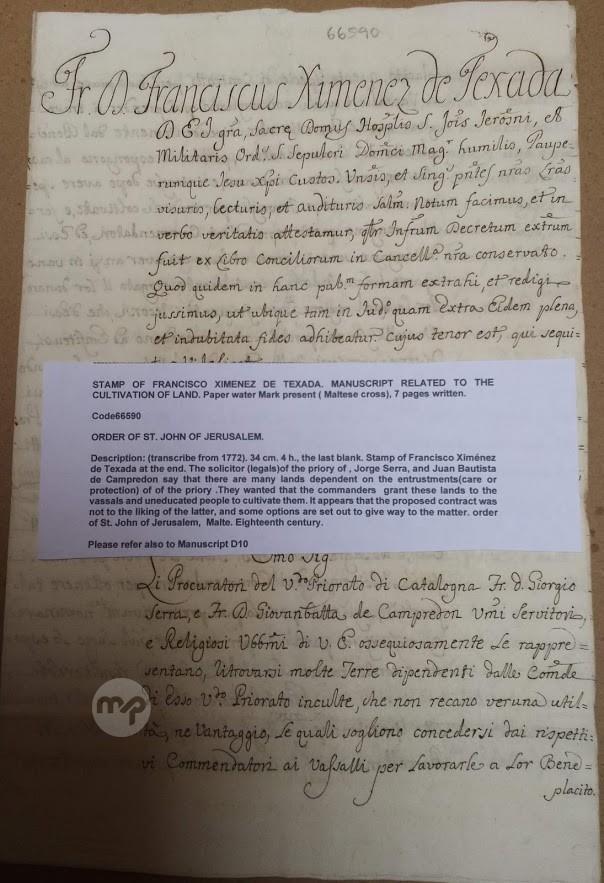 66590
Fr. D. Franciscus Ximenez de Texada
D E I grã, Sacre Domus Hosplis S. Jois Jerosni, et
Militaris Ordis S. Sepulcri Domci Magr humilis, Paupe-
rumque Jesu Xpi Custos. Unsis, et Sing. pntes nras Lras
visuris, lecturis, et audituris Salm. Notum facimus, et in
verbo veritatis attestamur, qtr Infrum Decretum extrum
fuit ex Libro Conciliorum in Cancella nra conservato.
Quod quidem in hanc pabm formam extrahi, et redigi
jussimus, ut ubique tam in Judo quam extra Eidem plena,
et indubitata fides adhibeatur. Cujus tenor est, qui sequi=
STAMP OF FRANCISCO XIMENEZ DE TEXADA. MANUSCRIPT RELATED TO THE
CULTIVATION OF LAND. Paper water Mark present ( Maltese cross), 7 pages written.
Code66590
ORDER OF ST. JOHN OF JERUSALEM.
Description: (transcribe from 1772). 34 cm. 4 h., the last blank. Stamp of Francisco Ximénez
de Texada at the end. The solicitor (legals)of the priory of , Jorge Serra, and Juan Bautista
de Campredon say that there are many lands dependent on the entrustments(care or
protection) of of the priory .They wanted that the commanders grant these lands to the
vassals and uneducated people to cultivate them. It appears that the proposed contract was
not to the liking of the latter, and some options are set out to give way to the matter. order
of St. John of Jerusalem, Malte. Eighteenth century.
Please refer also to Manuscript D10
Emo Sig.
Li Procuratori del V.do Priorato di Catalogna Fr. d. Giorgio
Serra, e Fr. D. Giovanbatta de Campredon Umi Servitori,
e Religiosi Ubbmi di V. E. ossequiosamente Le rappre=
sentano, ritrovarsi molte Terre dipendenti dalle Comde
di Esso V.do Priorato inculte, che non recano veruna util=
tà, ne Vantaggio, Le quali sogliono concedersi dai rispetti=
vi Commendatori ai Vassalli per Lavorarle a Lor Bene=
placito.
mp